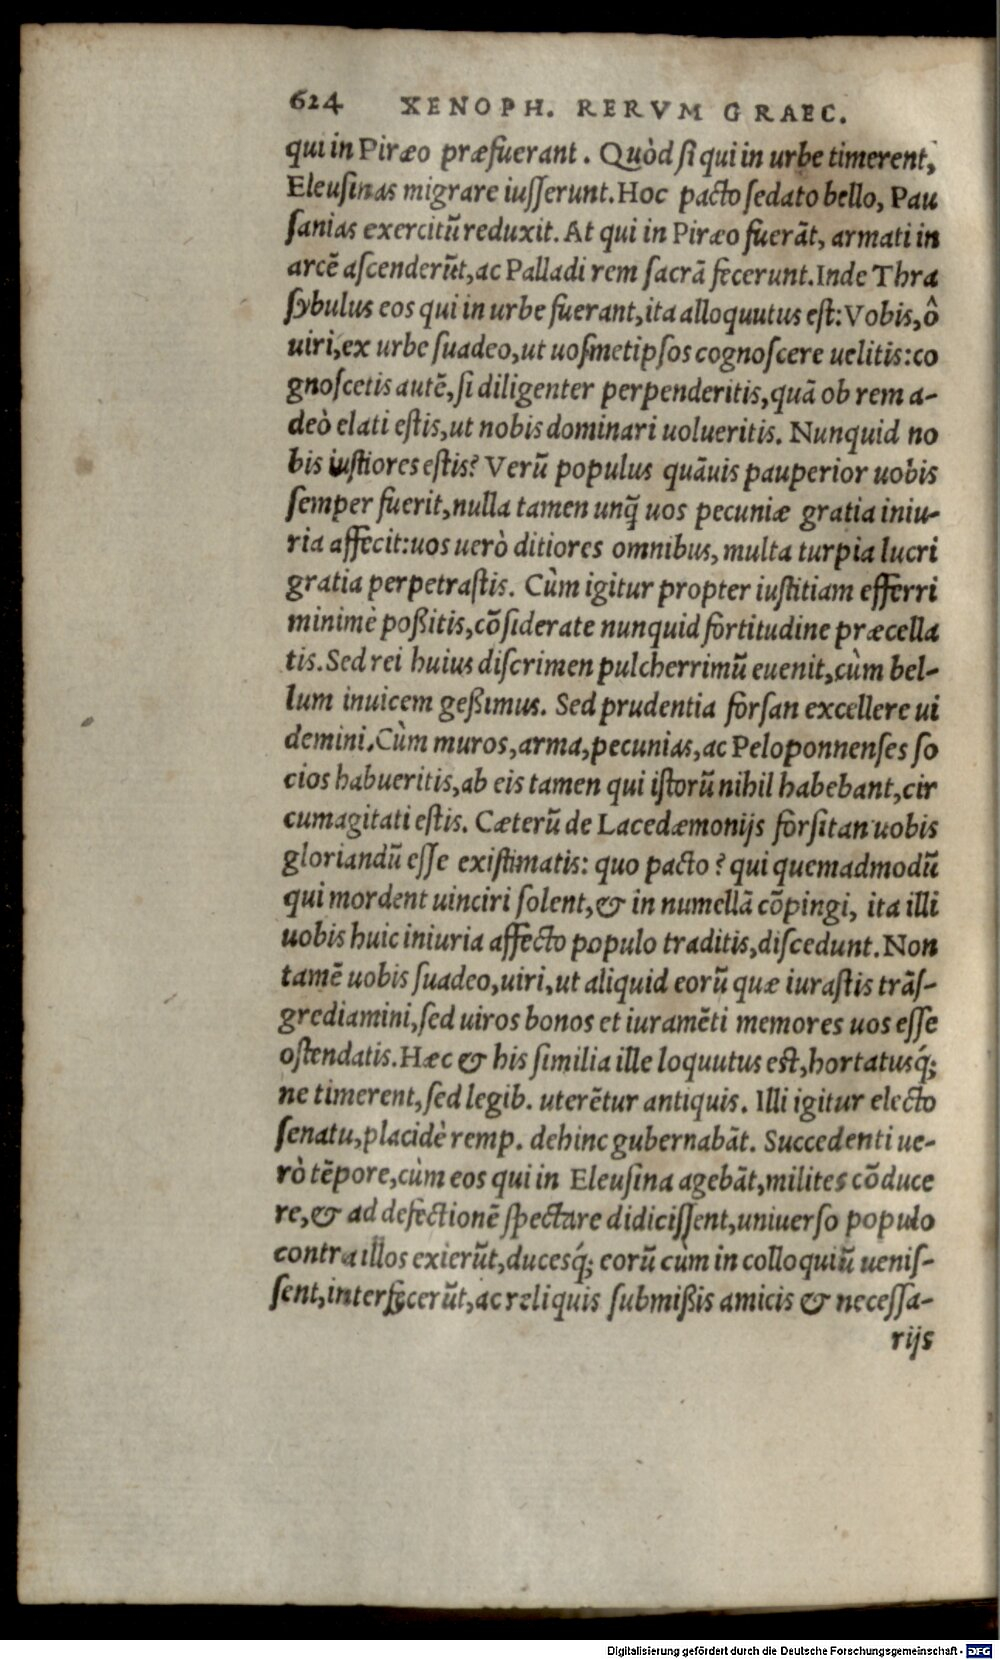 624 XENOPH. RERVM GRAEC.
qui in Piræo præfuerant. Quòd si qui in urbe timerent,
Eleusinas migrare iusserunt. Hoc pacto sedato bello, Pau
sanias exercitũ reduxit. At qui in Piræo fuerãt, armati in
arcẽ ascenderũt, ac Palladi rem sacrã fecerunt. Inde Thra
sybulus eos qui in urbe fuerant, ita alloquutus est: Vobis, ô
uiri, ex urbe suadeo, ut uosmetipsos cognoscere uelitis: co
gnoscetis autẽ, si diligenter perpenderitis, quã ob rem a-
deò elati estis, ut nobis dominari uolueritis. Nunquid no
bis iustiores estis? Verũ populus quãuis pauperior uobis
semper fuerit, nulla tamen unq̃ uos pecuniæ gratia iniu-
ria affecit: uos uerò ditiores omnibus, multa turpia lucri
gratia perpetrastis. Cùm igitur propter iustitiam efferri
minimè poßitis, cõsiderate nunquid fortitudine præcella
tis. Sed rei huius discrimen pulcherrimũ euenit, cùm bel-
lum inuicem geßimus. Sed prudentia forsan excellere ui
demini. Cùm muros, arma, pecunias, ac Peloponnenses so
cios habueritis, ab eis tamen qui istorũ nihil habebant, cir
cumagitati estis. Cæterũ de Lacedæmonijs forsitan uobis
gloriandũ esse existimatis: quo pacto? qui quemadmodũ
qui mordent uinciri solent, & in numellã cõpingi, ita illi
uobis huic iniuria affecto populo traditis, discedunt. Non
tamẽ uobis suadeo, uiri, ut aliquid eorũ quæ iurastis trãs-
grediamini, sed uiros bonos et iuramẽti memores uos esse
ostendatis. Hæc & his similia ille loquutus est, hortatusq́;
ne timerent, sed legib. uterẽtur antiquis. Illi igitur electo
senatu, placidè remp. dehinc gubernabãt. Succedenti ue-
rò tẽpore, cùm eos qui in Eleusina agebãt, milites cõduce
re, & ad defectionẽ spectare didicissent, uniuerso populo
contra illos exierũt, ducesq́; eorũ cùm in colloquiũ uenis-
sent, interfecerũt, ac reliquis submißis amicis & necessa-
rijs
Digitalisierung gefördert durch die Deutsche Forschungsgemeinschaft - DFG